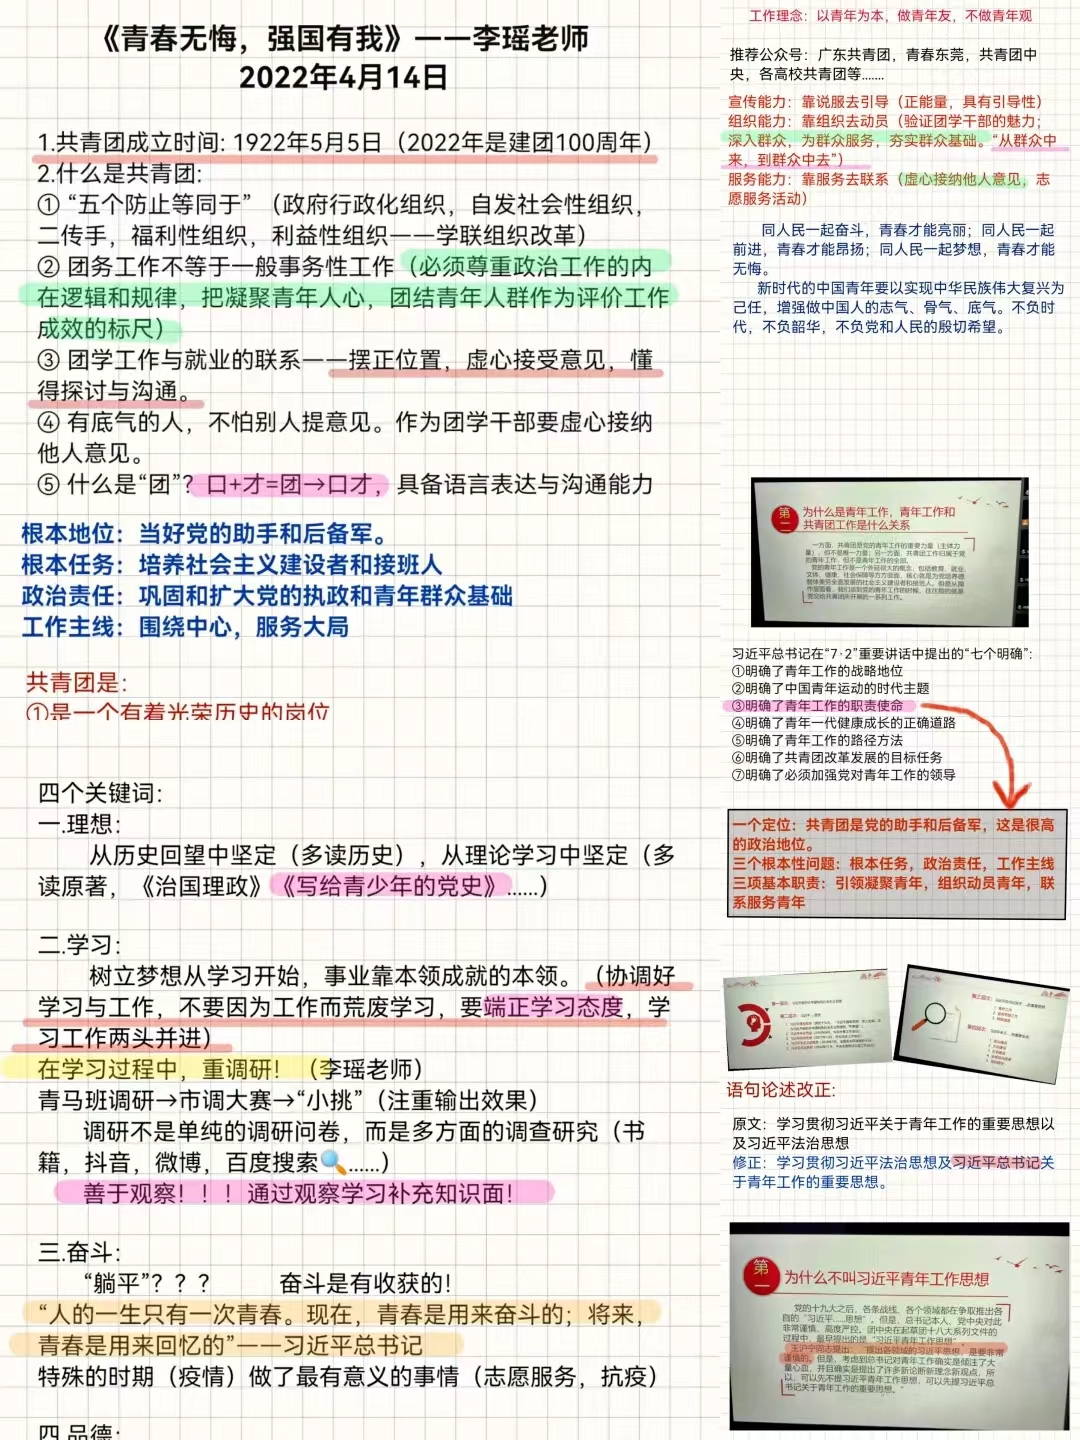 《青春无悔，强国有我》——李瑶老师
2022年4月14日
1.共青团成立时间: 1922年5月5日（2022年是建团100周年）
2.什么是共青团:
① “五个防止等同于”（政府行政化组织，自发社会性组织，
二传手，福利性组织，利益性组织——学联组织改革）
② 团务工作不等于一般事务性工作（必须尊重政治工作的内
在逻辑和规律，把凝聚青年人心，团结青年人群作为评价工作
成效的标尺）
③ 团学工作与就业的联系——摆正位置，虚心接受意见，懂
得探讨与沟通。
④ 有底气的人，不怕别人提意见。作为团学干部要虚心接纳
他人意见。
⑤ 什么是“团”？口+才=团→口才，具备语言表达与沟通能力
根本地位：当好党的助手和后备军。
根本任务：培养社会主义建设者和接班人
政治责任：巩固和扩大党的执政和青年群众基础
工作主线：围绕中心，服务大局
共青团是:
①是一个有着光荣历史的岗位
四个关键词:
一.理想:
从历史回望中坚定（多读历史），从理论学习中坚定（多
读原著，《治国理政》《写给青少年的党史》......）
二.学习:
树立梦想从学习开始，事业靠本领成就的本领。（协调好
学习与工作，不要因为工作而荒废学习，要端正学习态度，学
习工作两头并进）
在学习过程中，重调研！（李瑶老师）
青马班调研→市调大赛→“小挑”（注重输出效果）
调研不是单纯的调研问卷，而是多方面的调查研究（书
籍，抖音，微博，百度搜索🔍......）
善于观察！！！通过观察学习补充知识面！
三.奋斗:
“躺平”？？？ 奋斗是有收获的！
“人的一生只有一次青春。现在，青春是用来奋斗的；将来，
青春是用来回忆的”——习近平总书记
特殊的时期（疫情）做了最有意义的事情（志愿服务，抗疫）
四.品德:
工作理念：以青年为本，做青年友，不做青年观
推荐公众号：广东共青团，青春东莞，共青团中
央，各高校共青团等......
宣传能力：靠说服去引导（正能量，具有引导性）
组织能力：靠组织去动员（验证团学干部的魅力；
深入群众，为群众服务，夯实群众基础。“从群众中
来，到群众中去”）
服务能力：靠服务去联系（虚心接纳他人意见，志
愿服务活动）
同人民一起奋斗，青春才能亮丽；同人民一起
前进，青春才能昂扬；同人民一起梦想，青春才能
无悔。
新时代的中国青年要以实现中华民族伟大复兴为
己任，增强做中国人的志气、骨气、底气。不负时
代，不负韶华，不负党和人民的殷切希望。
第一
为什么是青年工作，青年工作和
共青团工作是什么关系
习近平总书记在“7·2”重要讲话中提出的“七个明确”:
①明确了青年工作的战略地位
②明确了中国青年运动的时代主题
③明确了青年工作的职责使命
④明确了青年一代健康成长的正确道路
⑤明确了青年工作的路径方法
⑥明确了共青团改革发展的目标任务
⑦明确了必须加强党对青年工作的领导
一个定位：共青团是党的助手和后备军，这是很高
的政治地位。
三个根本性问题：根本任务，政治责任，工作主线
三项基本职责：引领凝聚青年，组织动员青年，联
系服务青年
语句论述改正:
原文：学习贯彻习近平关于青年工作的重要思想以
及习近平法治思想
修正：学习贯彻习近平法治思想及习近平总书记关
于青年工作的重要思想。
第一
为什么不叫习近平青年工作思想
党的十九大之后，各条战线、各个领域都在争取推出各
自的“习近平……思想”。但是，总书记本人、党中央对此
非常谨慎、高度严控。团中央在起草团十八大系列文件的
过程中，最早提出的是“习近平青年工作思想”，
王沪宁同志提出：“提出各领域的习近平思想，是要非常
谨慎的。但是，考虑到总书记对青年工作确实是倾注了大
量心血，并且确实是提出了许多新论断新理念新观点，所
以，可以先不提习近平青年工作思想，可以先提习近平总
书记关于青年工作的重要思想。”